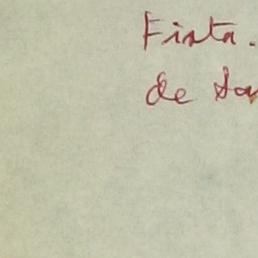 Fista.
de Sa